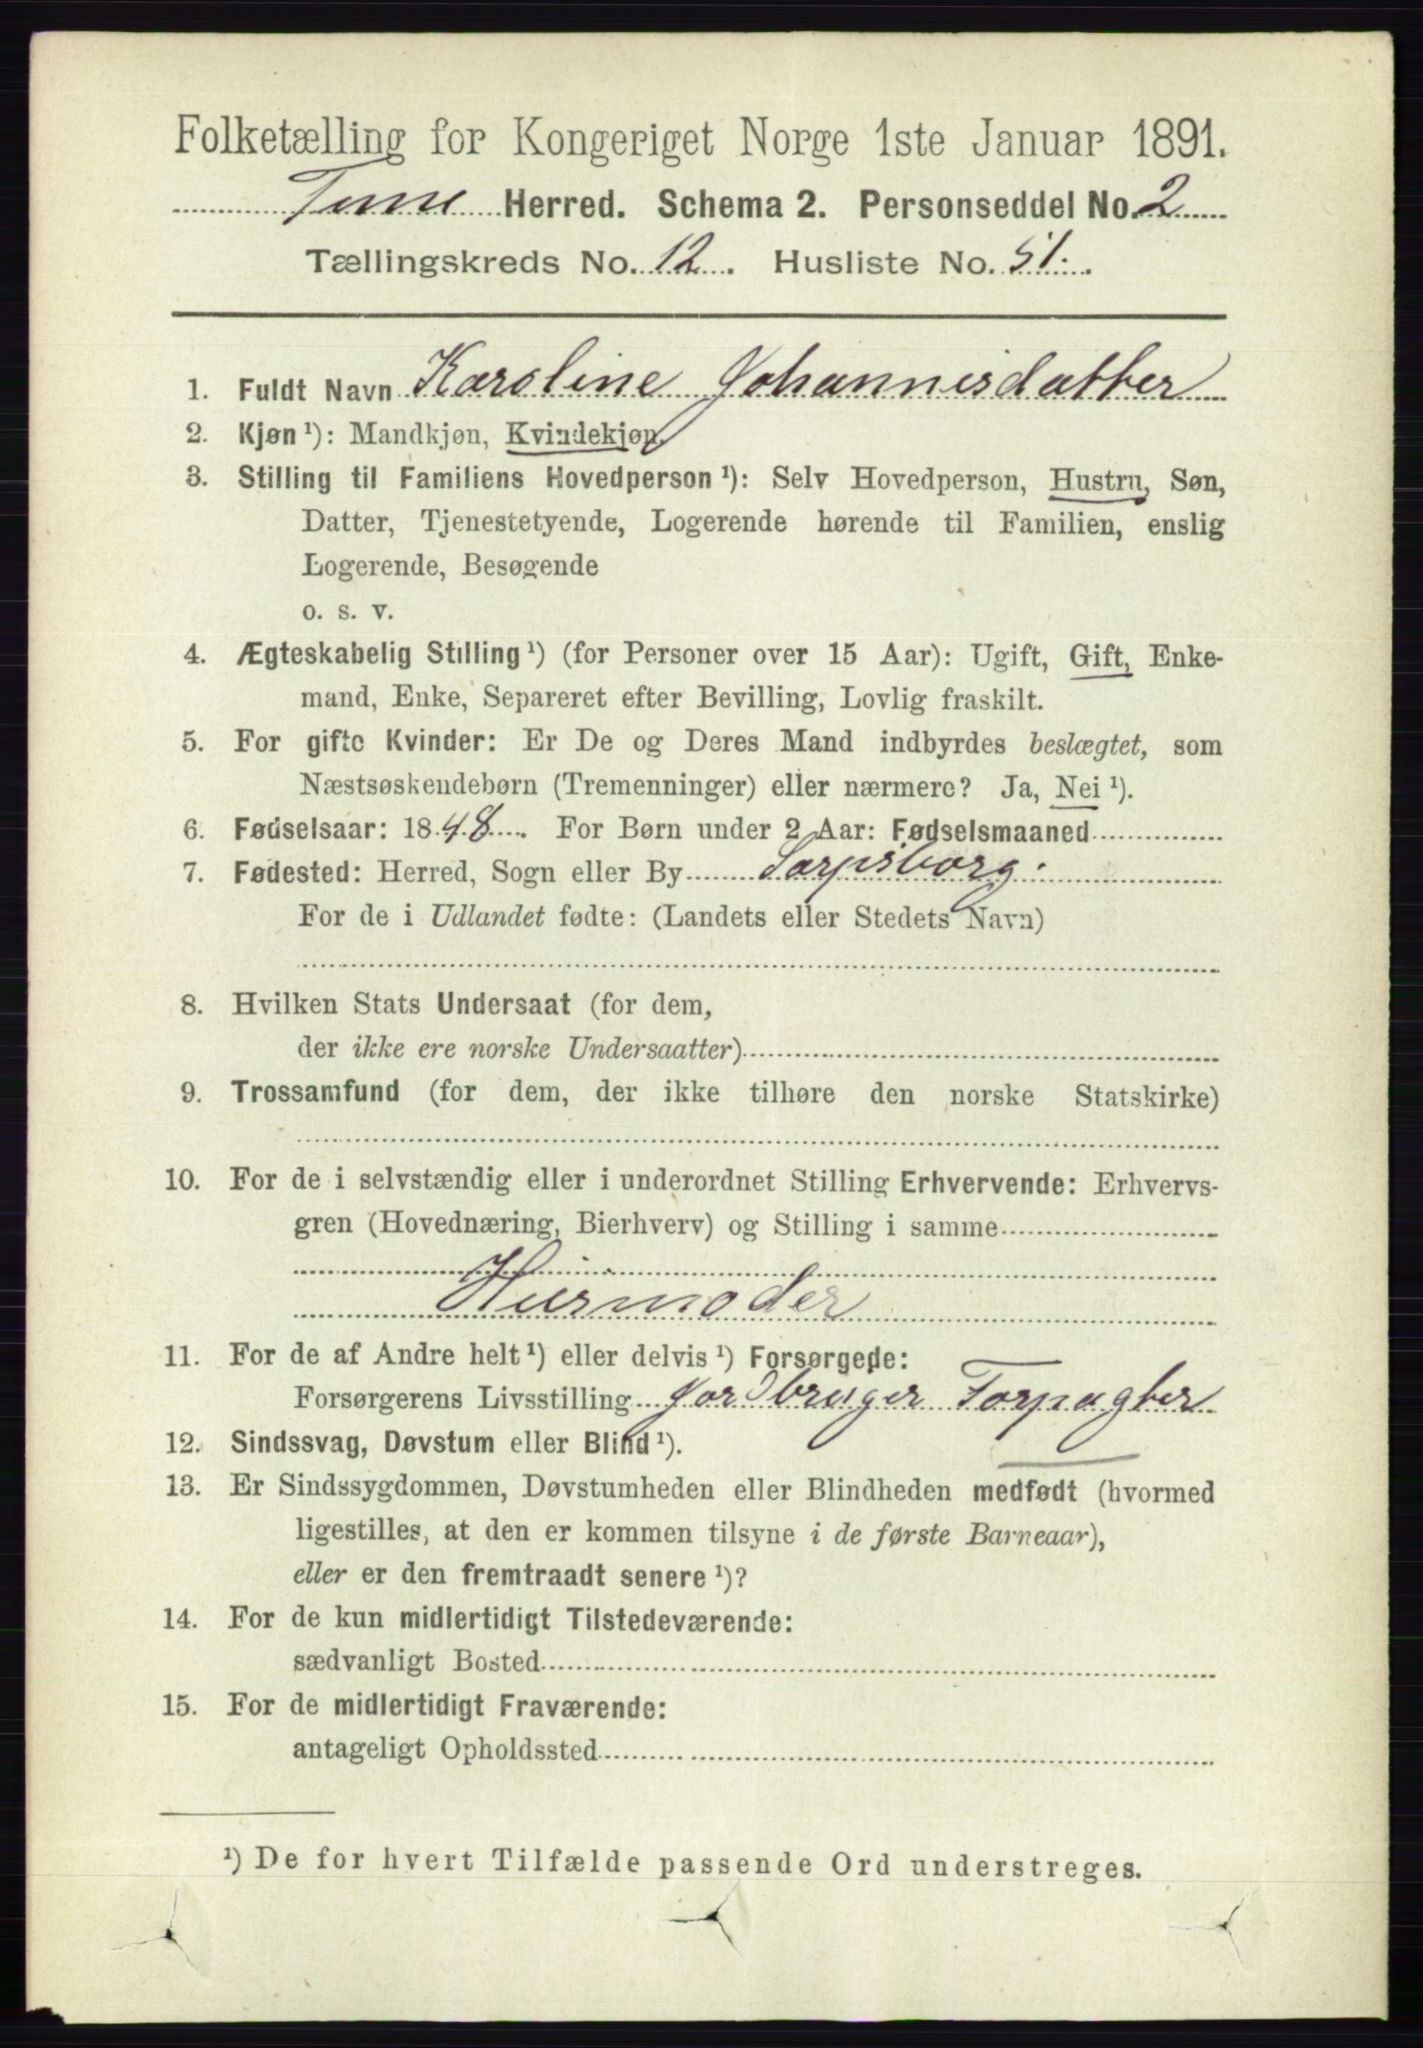 Folketælling for Kongeriget Norge 1ste Januar 1891.
Tune Herred. Schema 2. Personseddel No. 2
Tællingskreds No. 12. Husliste No. 51.
1. Fuldt Navn Karoline Johannisdatter
2. Kjøn ¹): Mandkjøn, Kvindekjøn.
3. Stilling til Familiens Hovedperson ¹): Selv Hovedperson, Hustru, Søn,
Datter, Tjenestetyende, Logerende hørende til Familien, enslig
Logerende, Besøgende
o. s. v.
4. Ægteskabelig Stilling ¹) (for Personer over 15 Aar): Ugift, Gift, Enke-
mand, Enke, Separeret efter Bevilling, Lovlig fraskilt.
5. For gifte Kvinder: Er De og Deres Mand indbyrdes beslægtet, som
Næstsøskendebørn (Tremenninger) eller nærmere? Ja, Nei ¹).
6. Fødselsaar: 1848. For Børn under 2 Aar: Fødselsmaaned
7. Fødested: Herred, Sogn eller By Sarpsborg.
For de i Udlandet fødte: (Landets eller Stedets Navn)
8. Hvilken Stats Undersaat (for dem,
der ikke ere norske Undersaatter)
9. Trossamfund (for dem, der ikke tilhøre den norske Statskirke)
10. For de i selvstændig eller i underordnet Stilling Erhvervende: Erhvervs-
gren (Hovednæring, Bierhverv) og Stilling i samme
Husmoder
11. For de af Andre helt ¹) eller delvis ¹) Forsørgede:
Forsørgerens Livsstilling Jordbruger Forpagter
12. Sindssvag, Døvstum eller Blind ¹).
13. Er Sindssygdommen, Døvstumheden eller Blindheden medfødt (hvormed
ligestilles, at den er kommen tilsyne i de første Barneaar),
eller er den fremtraadt senere ¹)?
14. For de kun midlertidigt Tilstedeværende:
sædvanligt Bosted
15. For de midlertidigt Fraværende:
antageligt Opholdssted
¹) De for hvert Tilfælde passende Ord understreges.